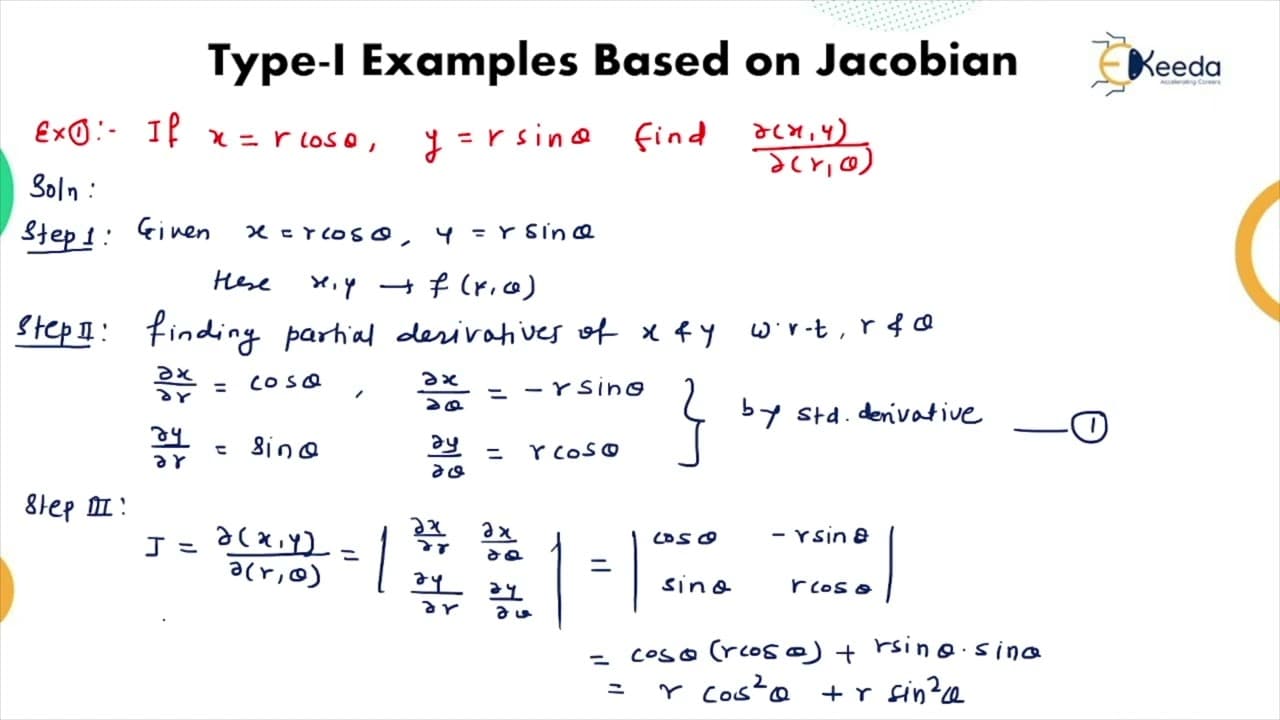 Type-I Examples Based on Jacobian
EKeeda
Accelerating Careers
Ex①:- If x = r cosθ, y = r sinθ find ∂(x,y)/∂(r,θ)
Soln:
Step I: Given x = r cosθ, y = r sinθ
Here x,y → f(r,θ)
Step II: finding partial derivatives of x & y w.r.t, r & θ
∂x/∂r = cosθ, ∂x/∂θ = -r sinθ
∂y/∂r = sinθ ∂y/∂θ = r cosθ } by std. derivative —①
Step III:
J = ∂(x,y)/∂(r,θ) = | ∂x/∂r ∂x/∂θ | = | cosθ -r sinθ |
| ∂y/∂r ∂y/∂θ | | sinθ r cosθ |
= cosθ (r cosθ) + r sinθ·sinθ
= r cos²θ + r sin²θ